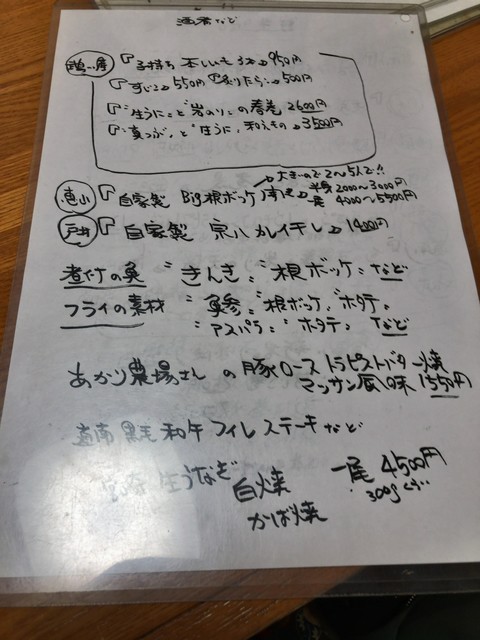 酒肴など
『子持ち 3本 950円
『すじこ 550円 『炙りたらこ 500円
『"生うに"と"岩のり"の巻 2600円
『"真つぶ"と"生うに"和えもの 3500円
大きいので2〜5人で!!
恵山 『自家製 Big根ボッケ 半身 2000〜3000円
一尾 4000〜5500円
戸井 『自家製 宗八カレイ干し 1400円
煮付の魚 "きんき" "根ボッケ"など
フライの素材 "根ボッケ" "ホタテ"
"アスパラ" "ホタテ"など
あかり農場さんの豚ロース トラピストバター焼
マッサン風味 1550円
道南黒毛和牛フィレステーキなど
生うなぎ 白焼 一尾 4500円
300gくらい
かば焼